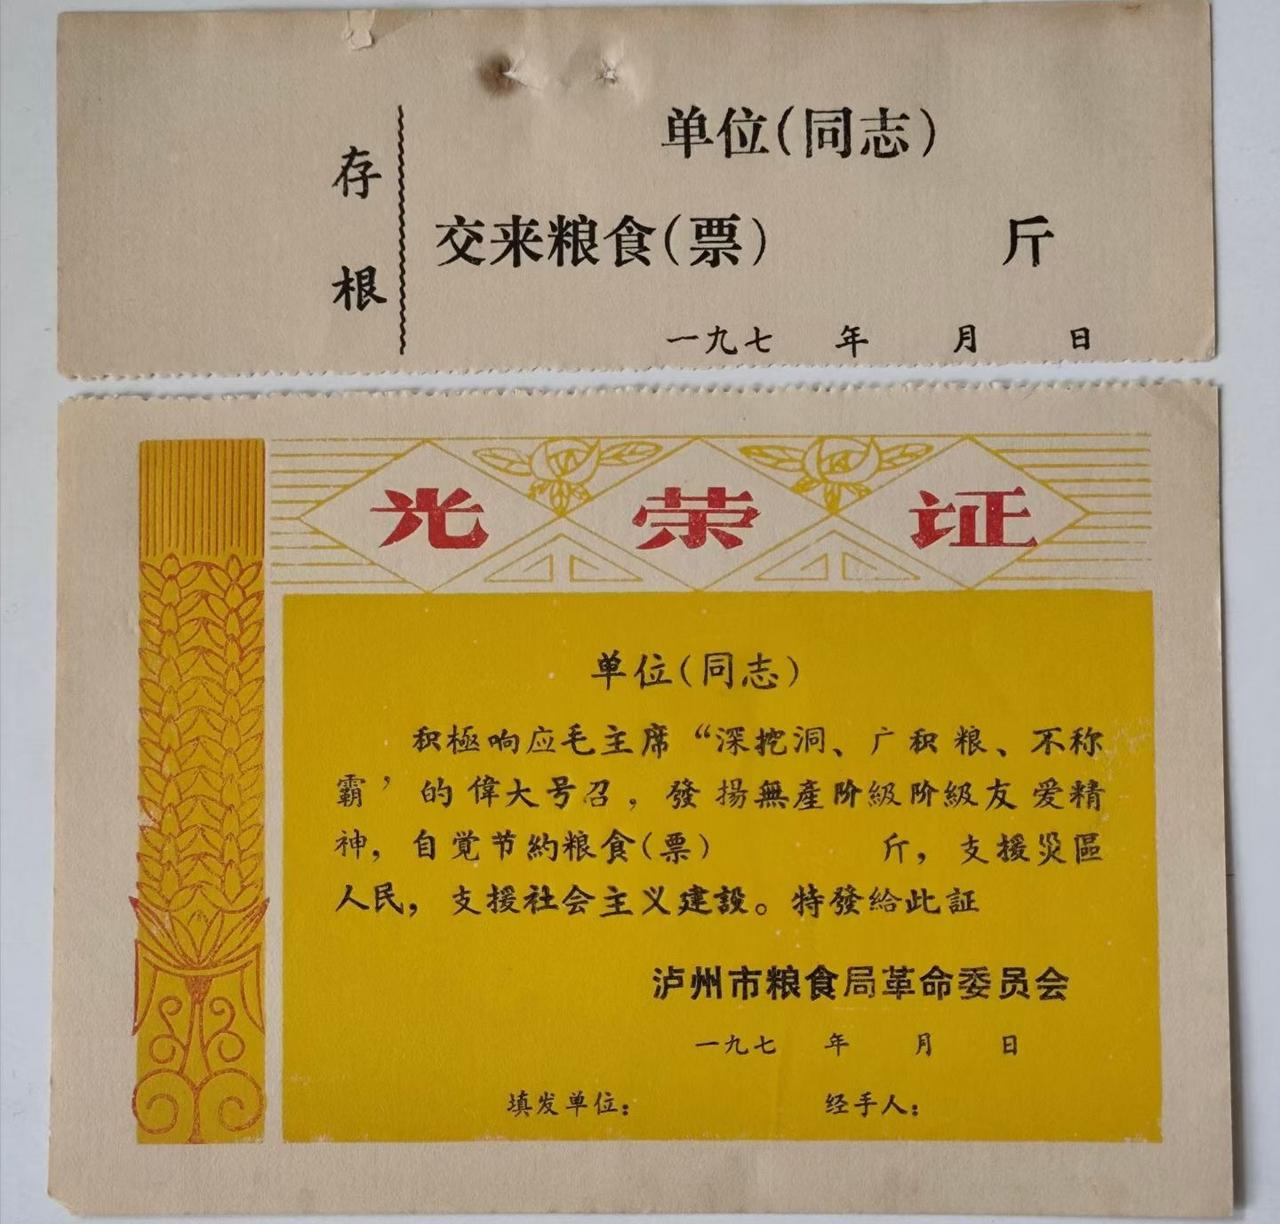 存根
单位(同志)
交来粮食(票) 斤
一九七 年 月 日
光荣证
单位(同志)
积極响应毛主席“深挖洞、广积粮、不称
霸’的偉大号召，發揚無產阶級阶級友爱精
神，自覚节約粮食(票) 斤，支援災區
人民，支援社会主义建設。特發給此証
泸州市粮食局革命委员会
一九七 年 月 日
填发单位： 经手人：